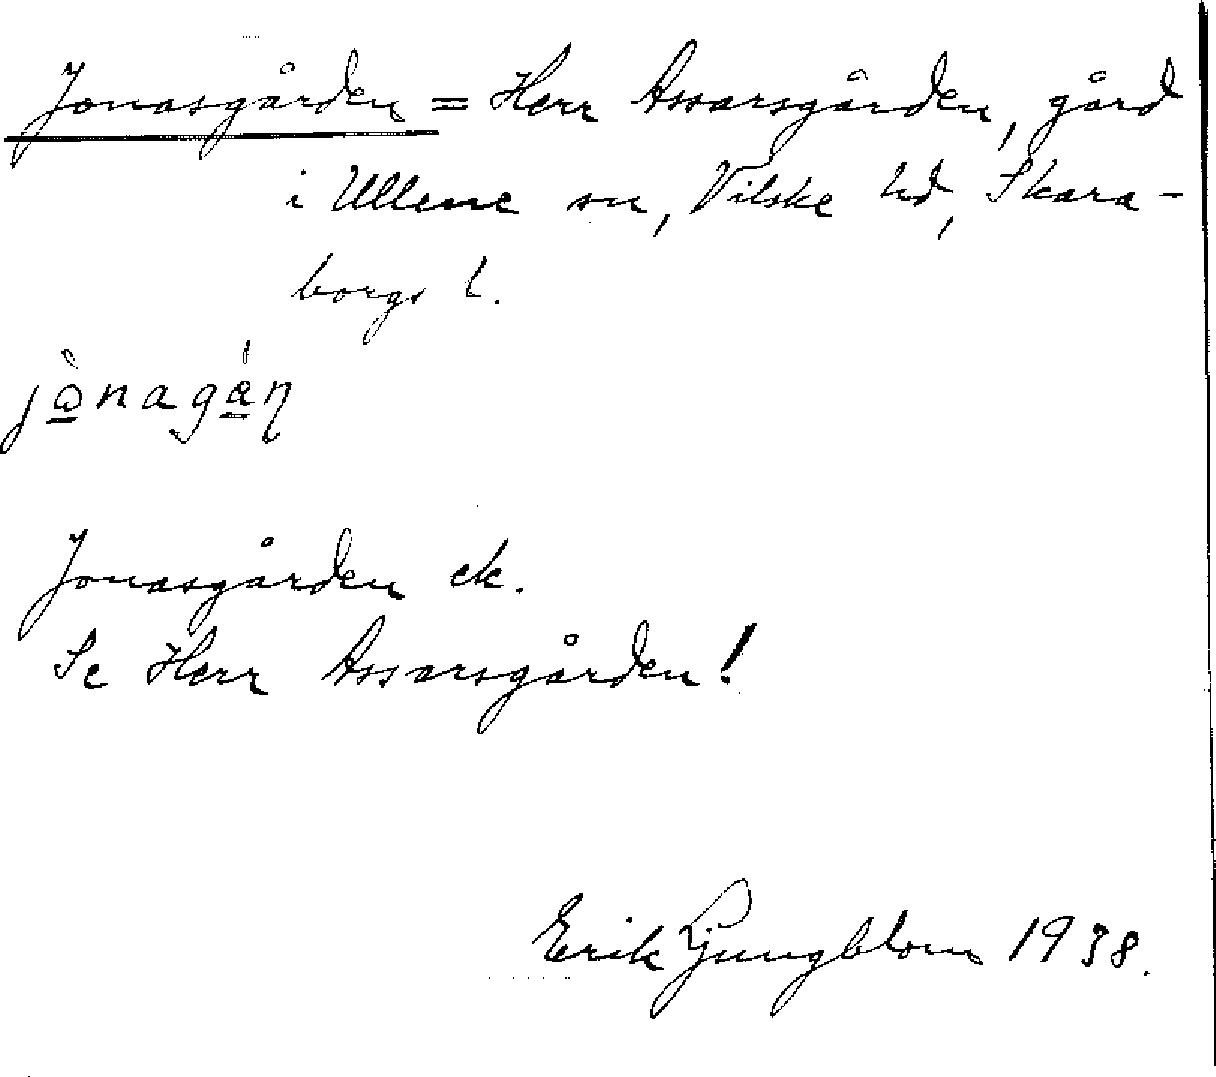 Jonasgården = Herr Assarsgården, gård
i Ullene sn, Vilske hd, Skara-
borgs l.
Jonasgården ek.
Se Herr Assarsgården!
Erik Ljungblom 1938.